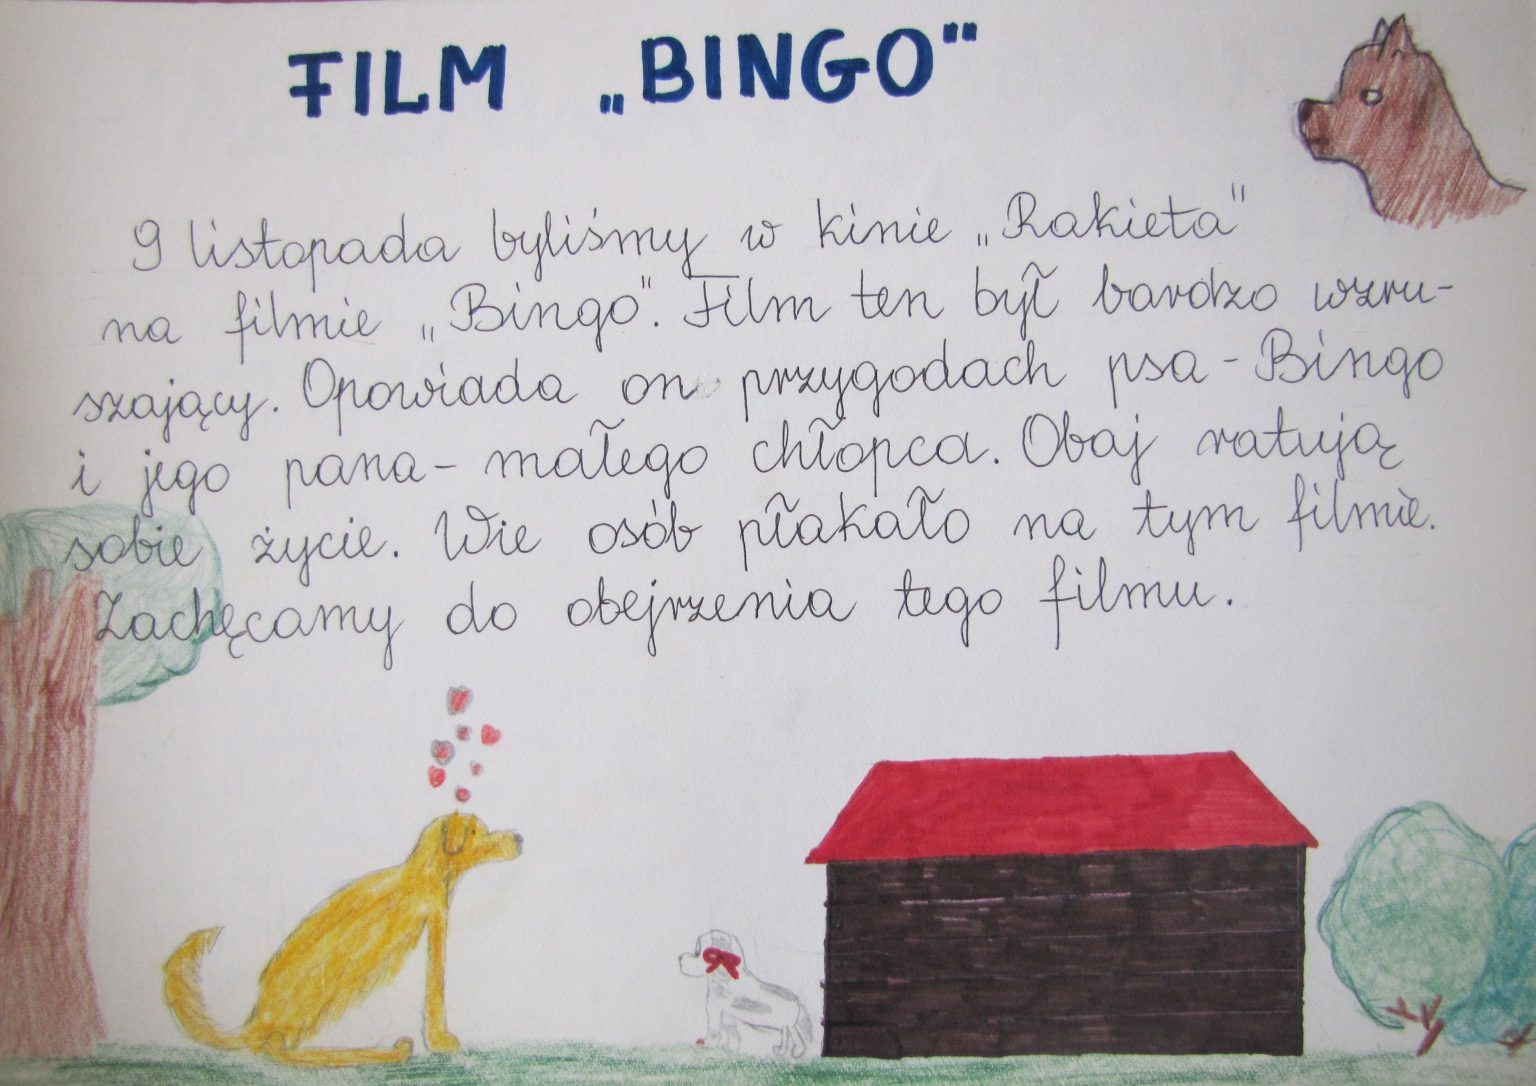 FILM „BINGO"
9 listopada byliśmy w kinie „Rakieta"
na filmie „Bingo". Film ten był bardzo wzru-
szający. Opowiada on przygodach psa - Bingo
i jego pana - małego chłopca. Obaj ratują
sobie życie. Wie osób płakało na tym filmie.
Zachęcamy do obejrzenia tego filmu.